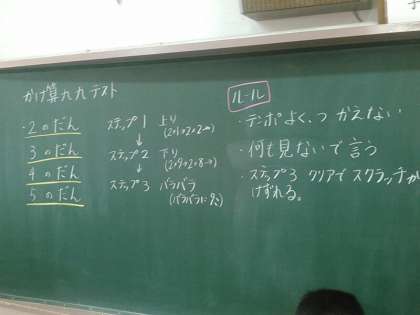 かけ算九九テスト
・2のだん
3のだん
4のだん
5のだん
ステップ1 上り
(2×1→2×2→)
↓
ステップ2 下り
(2×9→2×8→)
↓
ステップ3 バラバラ
(バラバラに9こ)
ルール
・テンポよく、つかえない
・何も見ないで言う
・ステップ3 クリアで スクラッチが
けずれる。